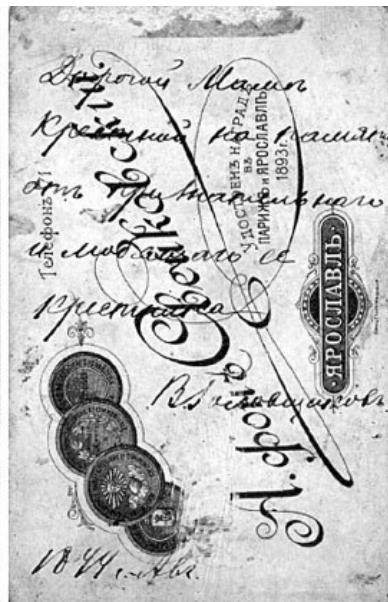 Дорогой Мамѣ
Крестной на память
отъ признательнаго
и любящаго ее
крестника
г. Авг.
А. фонъ Свейковскій
Телефонъ
УДОСТОЕНЪ НАГРАДЪ
ВЪ
ПАРИЖѢ и ЯРОСЛАВЛѢ
1893г.
ЯРОСЛАВЛЬ